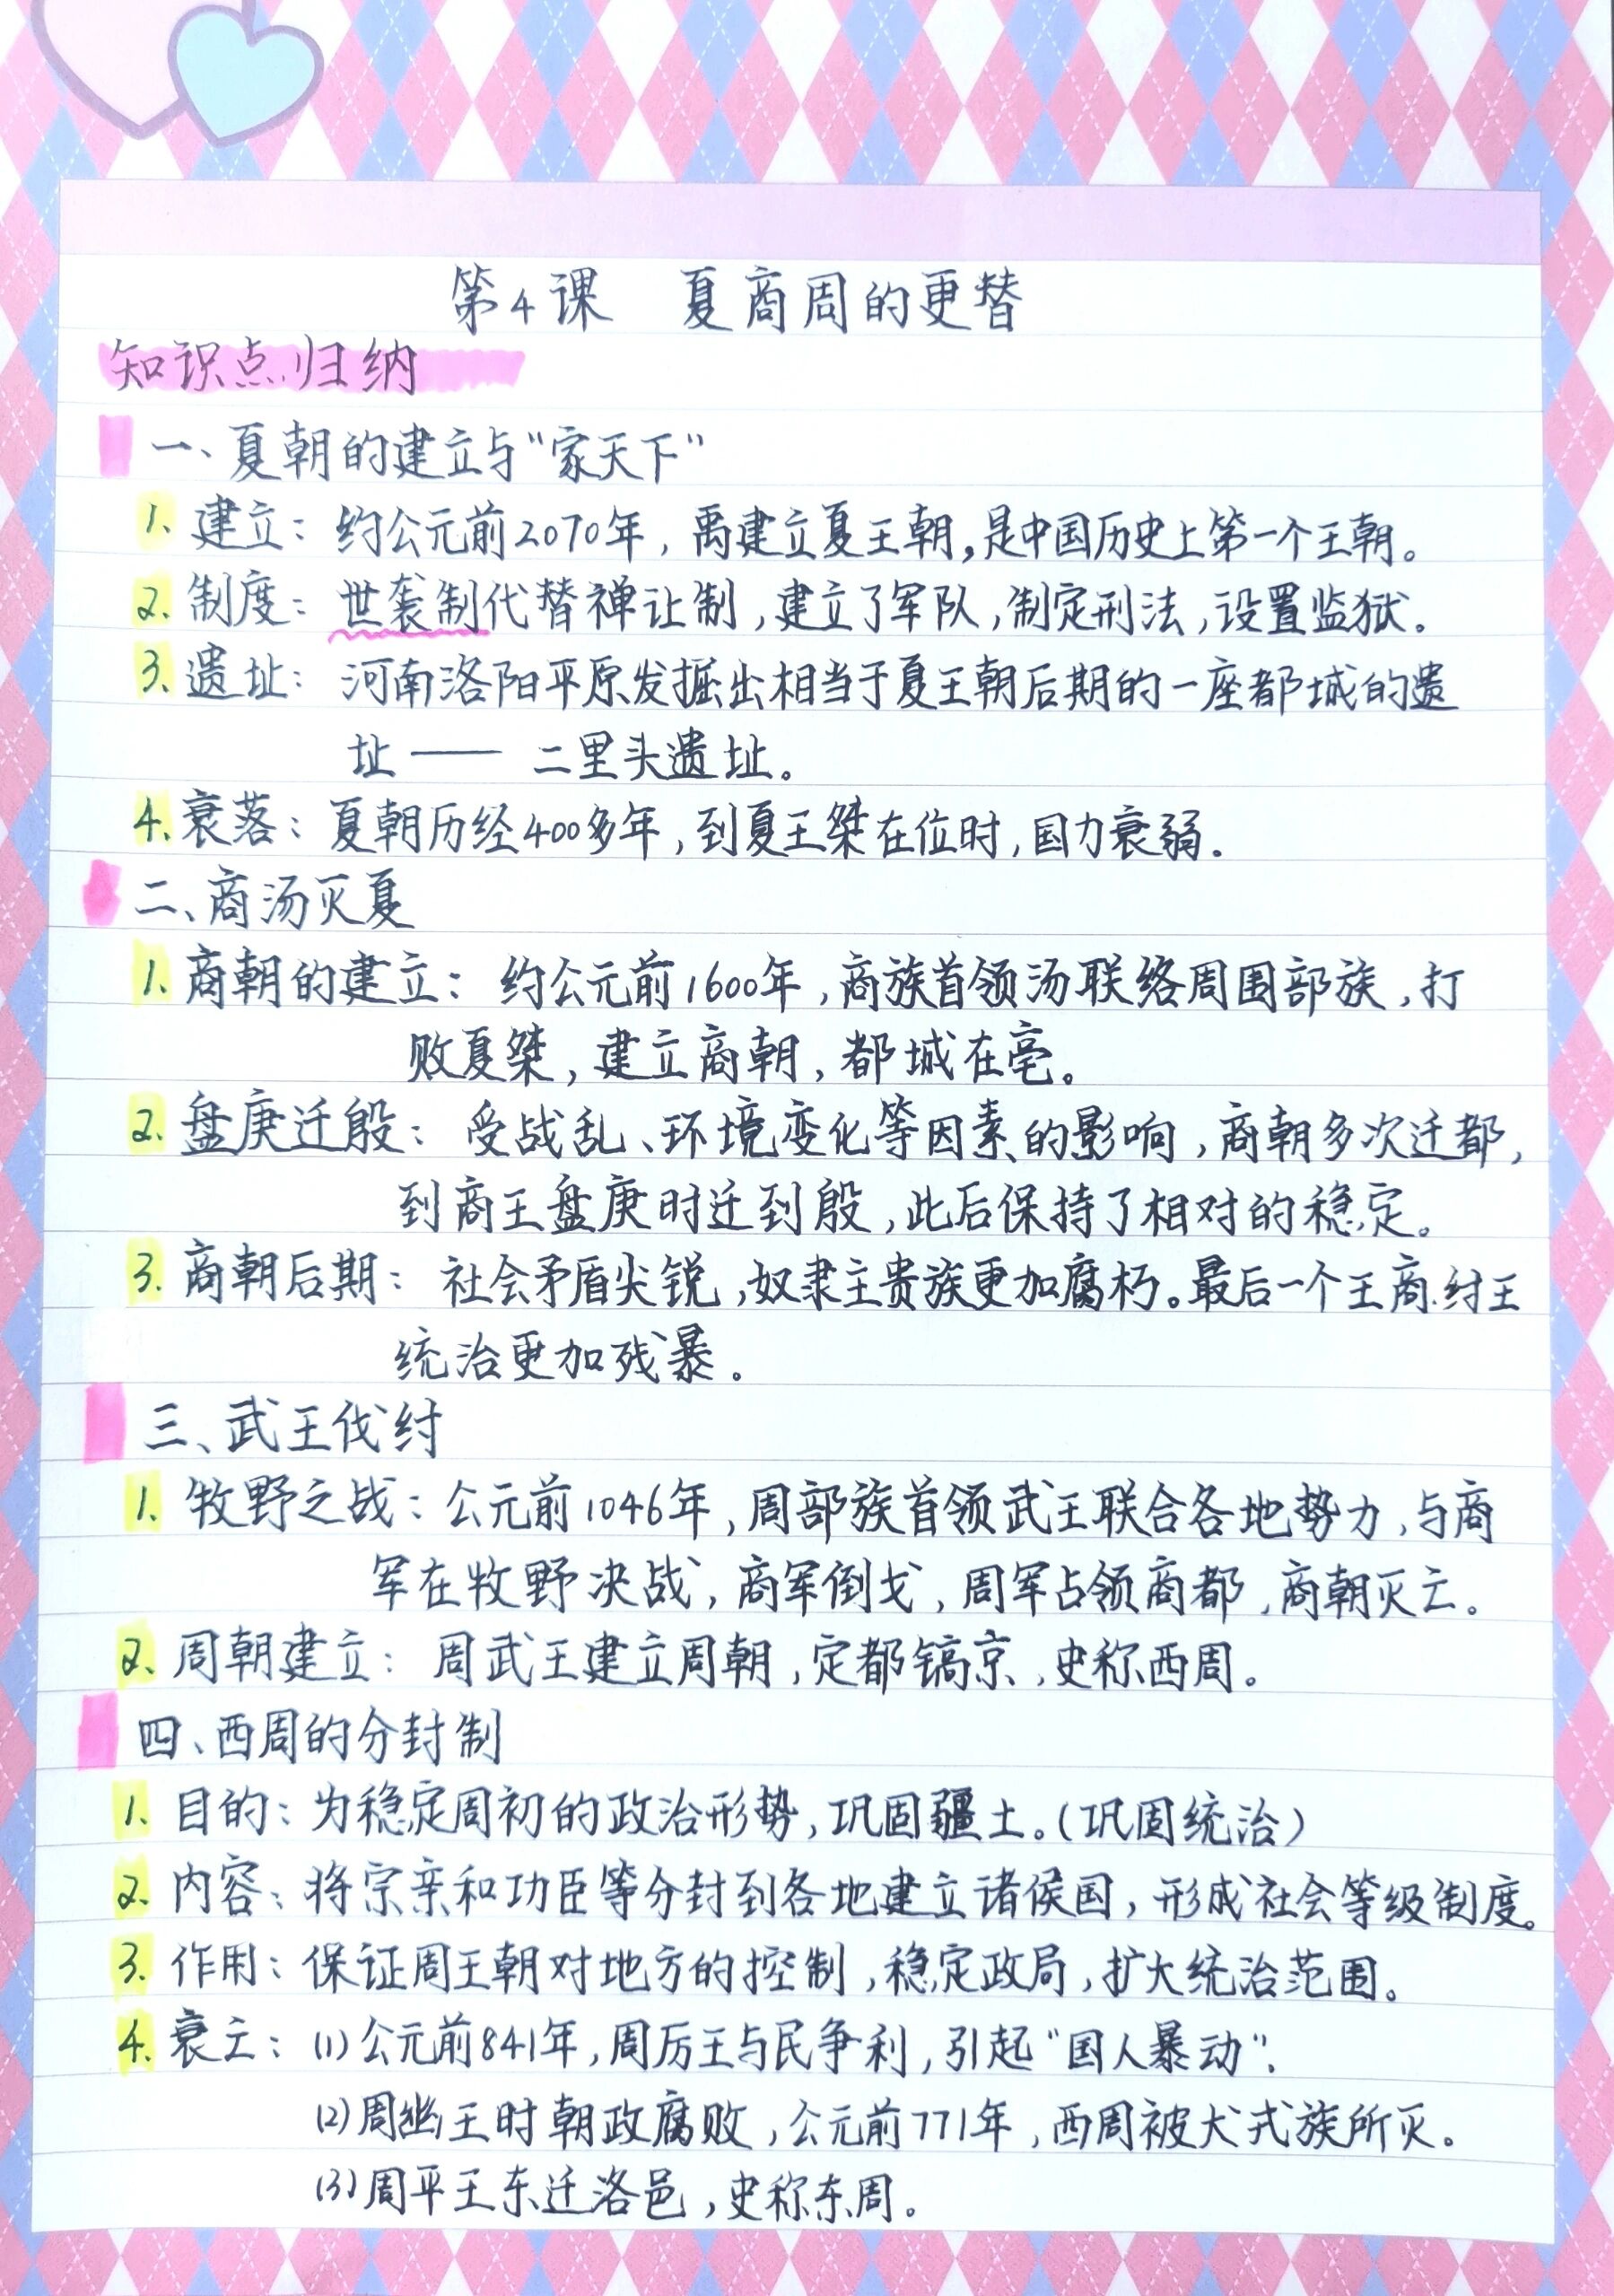 第4课 夏商周的更替
知识点归纳
一、夏朝的建立与“家天下”
1. 建立：约公元前2070年，禹建立夏王朝，是中国历史上第一个王朝。
2. 制度：世袭制代替禅让制，建立了军队，制定刑法，设置监狱。
3. 遗址：河南洛阳平原发掘出相当于夏王朝后期的一座都城的遗
址——二里头遗址。
4. 衰落：夏朝历经400多年，到夏王桀在位时，国力衰弱.
二、商汤灭夏
1. 商朝的建立：约公元前1600年，商族首领汤联络周围部族，打
败夏桀，建立商朝，都城在亳。
2. 盘庚迁殷：受战乱、环境变化等因素的影响，商朝多次迁都，
到商王盘庚时迁到殷，此后保持了相对的稳定。
3. 商朝后期：社会矛盾尖锐，奴隶主贵族更加腐朽。最后一个王商纣王
统治更加残暴。
三、武王伐纣
1. 牧野之战：公元前1046年，周部族首领武王联合各地势力，与商
军在牧野决战，商军倒戈，周军占领商都，商朝灭亡。
2. 周朝建立：周武王建立周朝，定都镐京，史称西周。
四、西周的分封制
1. 目的：为稳定周初的政治形势，巩固疆土。（巩固统治）
2. 内容：将宗亲和功臣等分封到各地建立诸侯国，形成社会等级制度。
3. 作用：保证周王朝对地方的控制，稳定政局，扩大统治范围。
4. 衰亡：(1)公元前841年，周厉王与民争利，引起“国人暴动”.
(2)周幽王时朝政腐败，公元前771年，西周被犬戎族所灭。
(3)周平王东迁洛邑，史称东周。